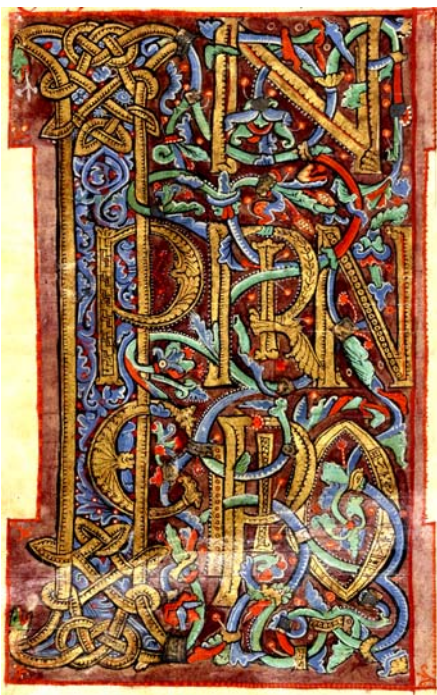 IN
PRIN
CIPIO